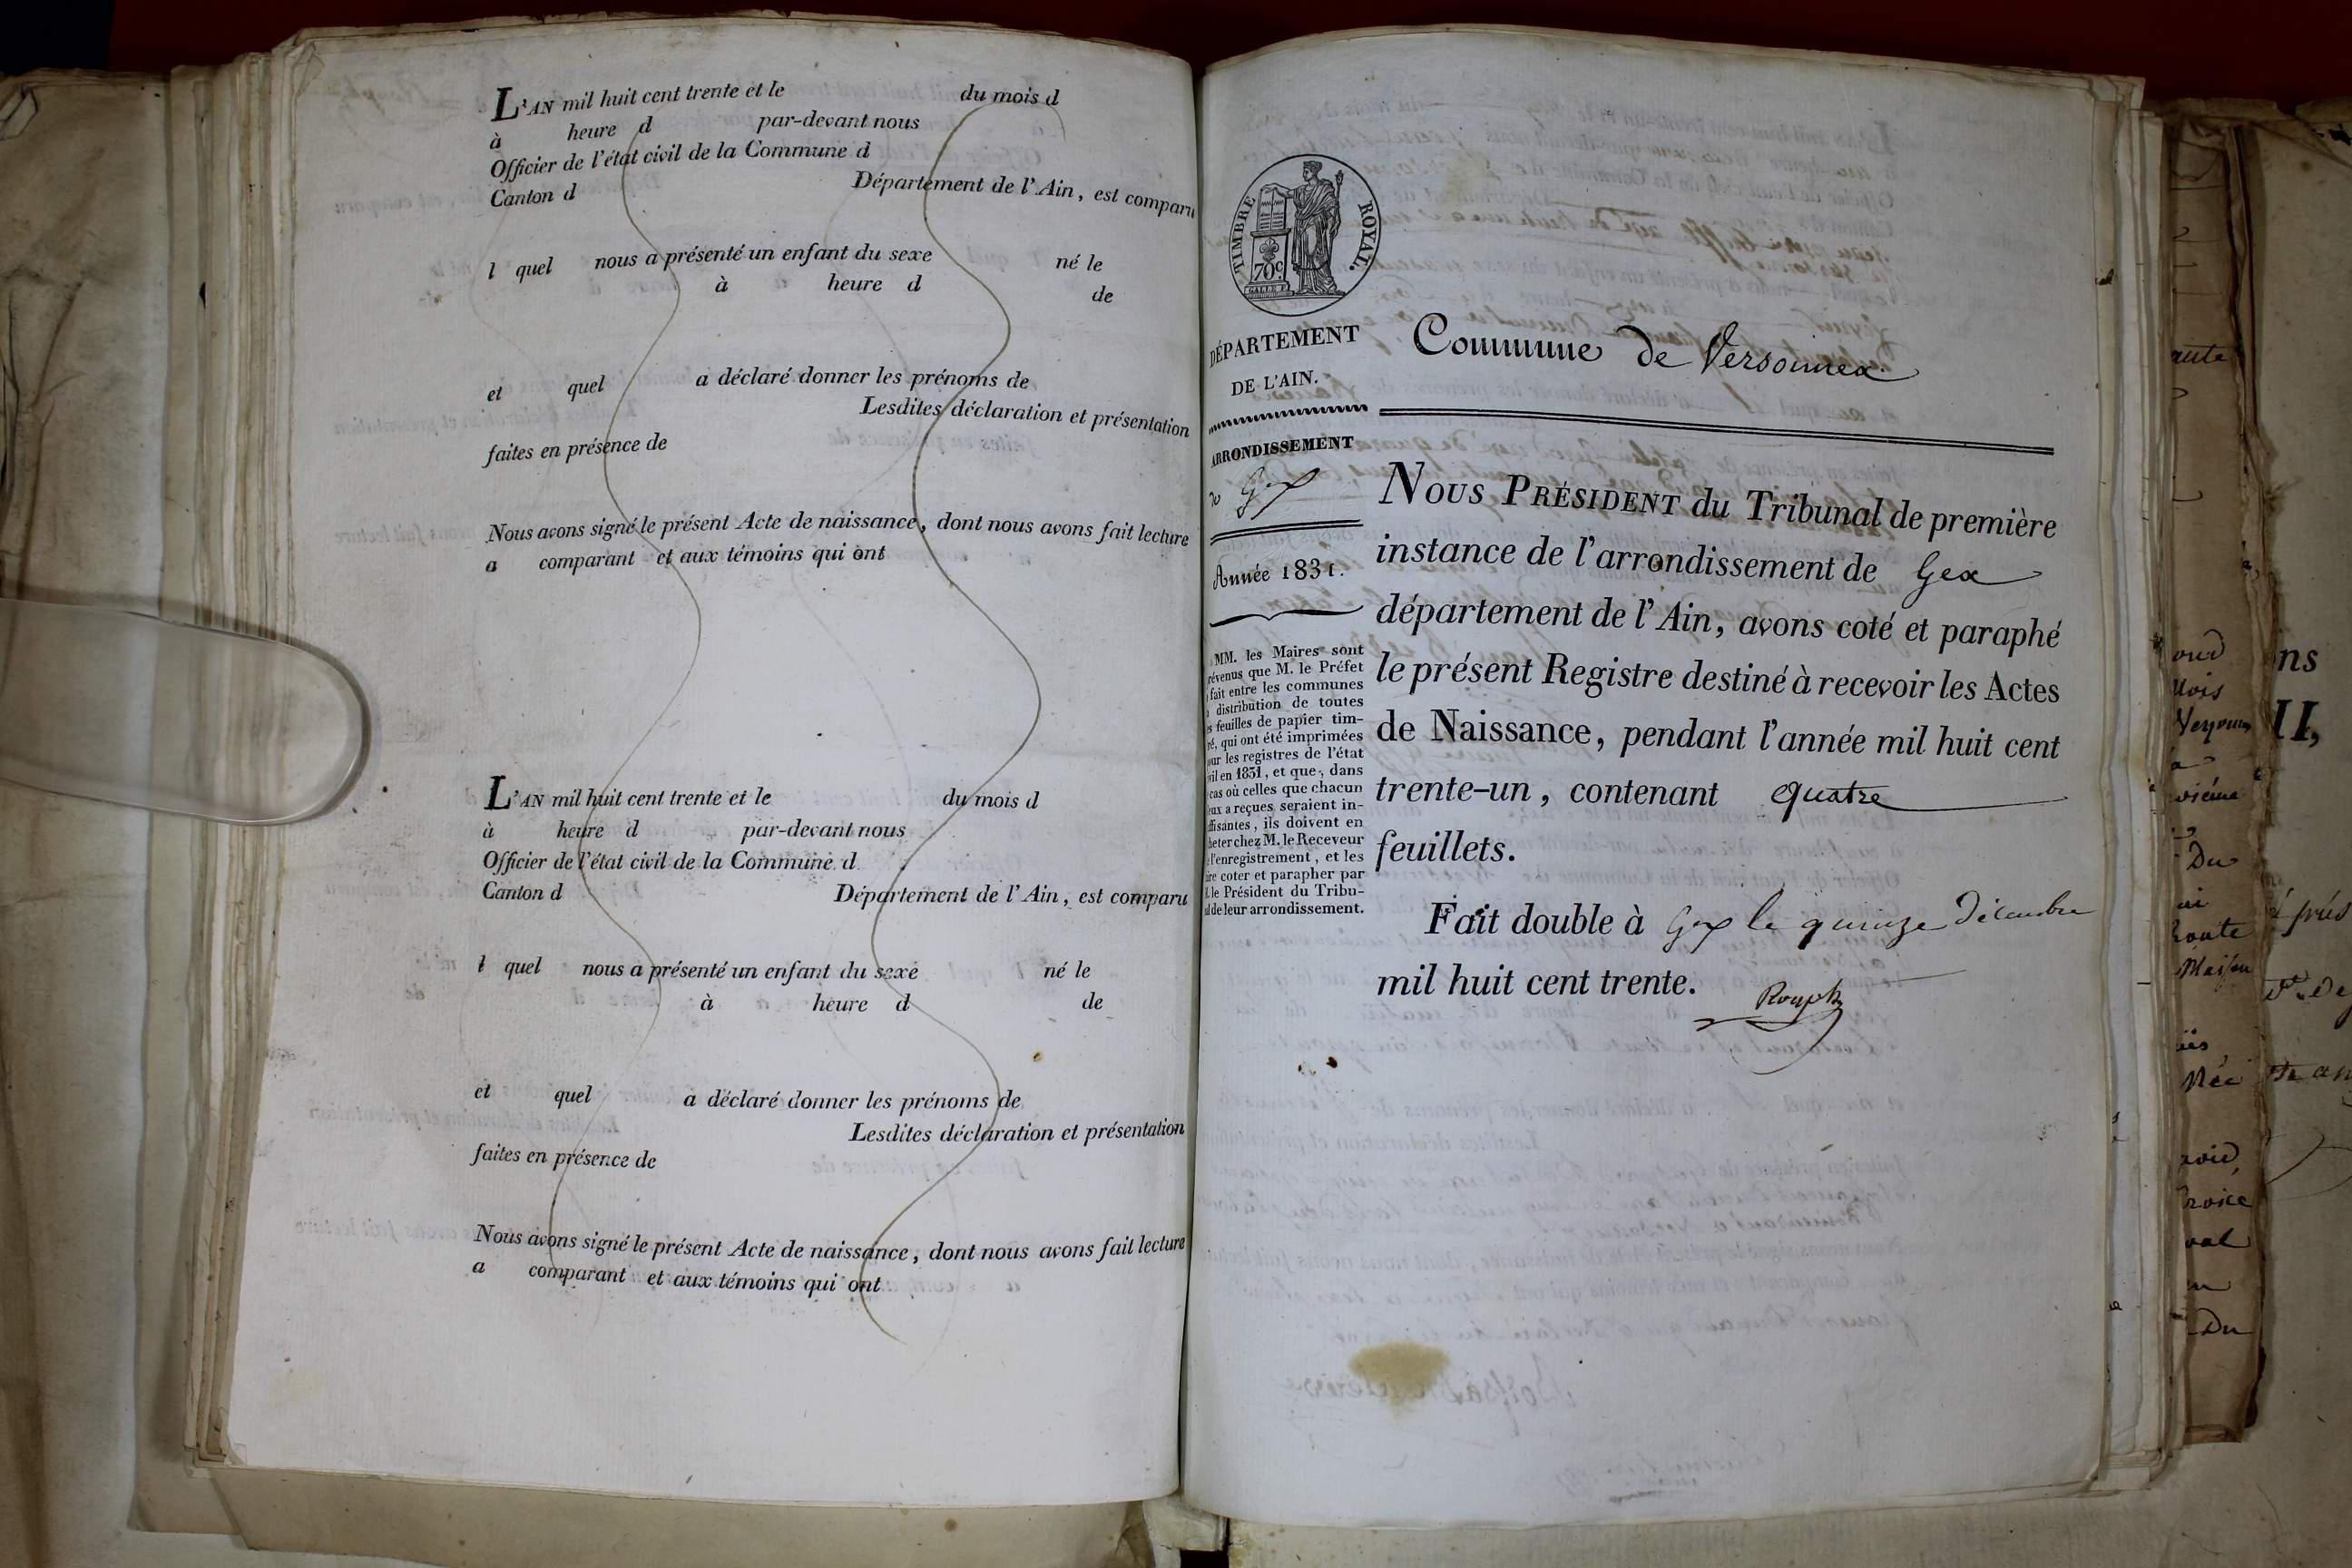 L'AN mil huit cent trente et le du mois d
à heure d par-devant nous
Officier de l'état civil de la Commune d
Canton d Département de l'Ain, est comparu
l quel nous a présenté un enfant du sexe né le
à heure d de
et quel a déclaré donner les prénoms de
Lesdites déclaration et présentation
faites en présence de
Nous avons signé le présent Acte de naissance, dont nous avons fait lecture
a comparant et aux témoins qui ont
L'AN mil huit cent trente et le du mois d
à heure d par-devant nous
Officier de l'état civil de la Commune d
Canton d Département de l'Ain, est comparu
l quel nous a présenté un enfant du sexe né le
à heure d de
et quel a déclaré donner les prénoms de
Lesdites déclaration et présentation
faites en présence de
Nous avons signé le présent Acte de naissance, dont nous avons fait lecture
a comparant et aux témoins qui ont
TIMBRE ROYAL.
70c
GALLE F.
DÉPARTEMENT
DE L'AIN.
ARRONDISSEMENT
de Gex
Année 1831.
MM. les Maires sont
révenus que M. le Préfet
fait entre les communes
distribution de toutes
es feuilles de papier tim-
ré, qui ont été imprimées
our les registres de l'état
vil en 1831, et que, dans
cas où celles que chacun
eux a reçues seraient in-
ffisantes, ils doivent en
heter chez M. le Receveur
l'enregistrement, et les
ire coter et parapher par
le Président du Tribu-
al de leur arrondissement.
Commune de Versonnex
NOUS PRÉSIDENT du Tribunal de première
instance de l'arrondissement de Gex
département de l'Ain, avons coté et paraphé
le présent Registre destiné à recevoir les Actes
de Naissance, pendant l'année mil huit cent
trente-un, contenant quatre
feuillets.
Fait double à Gex le quinze Décembre
mil huit cent trente.